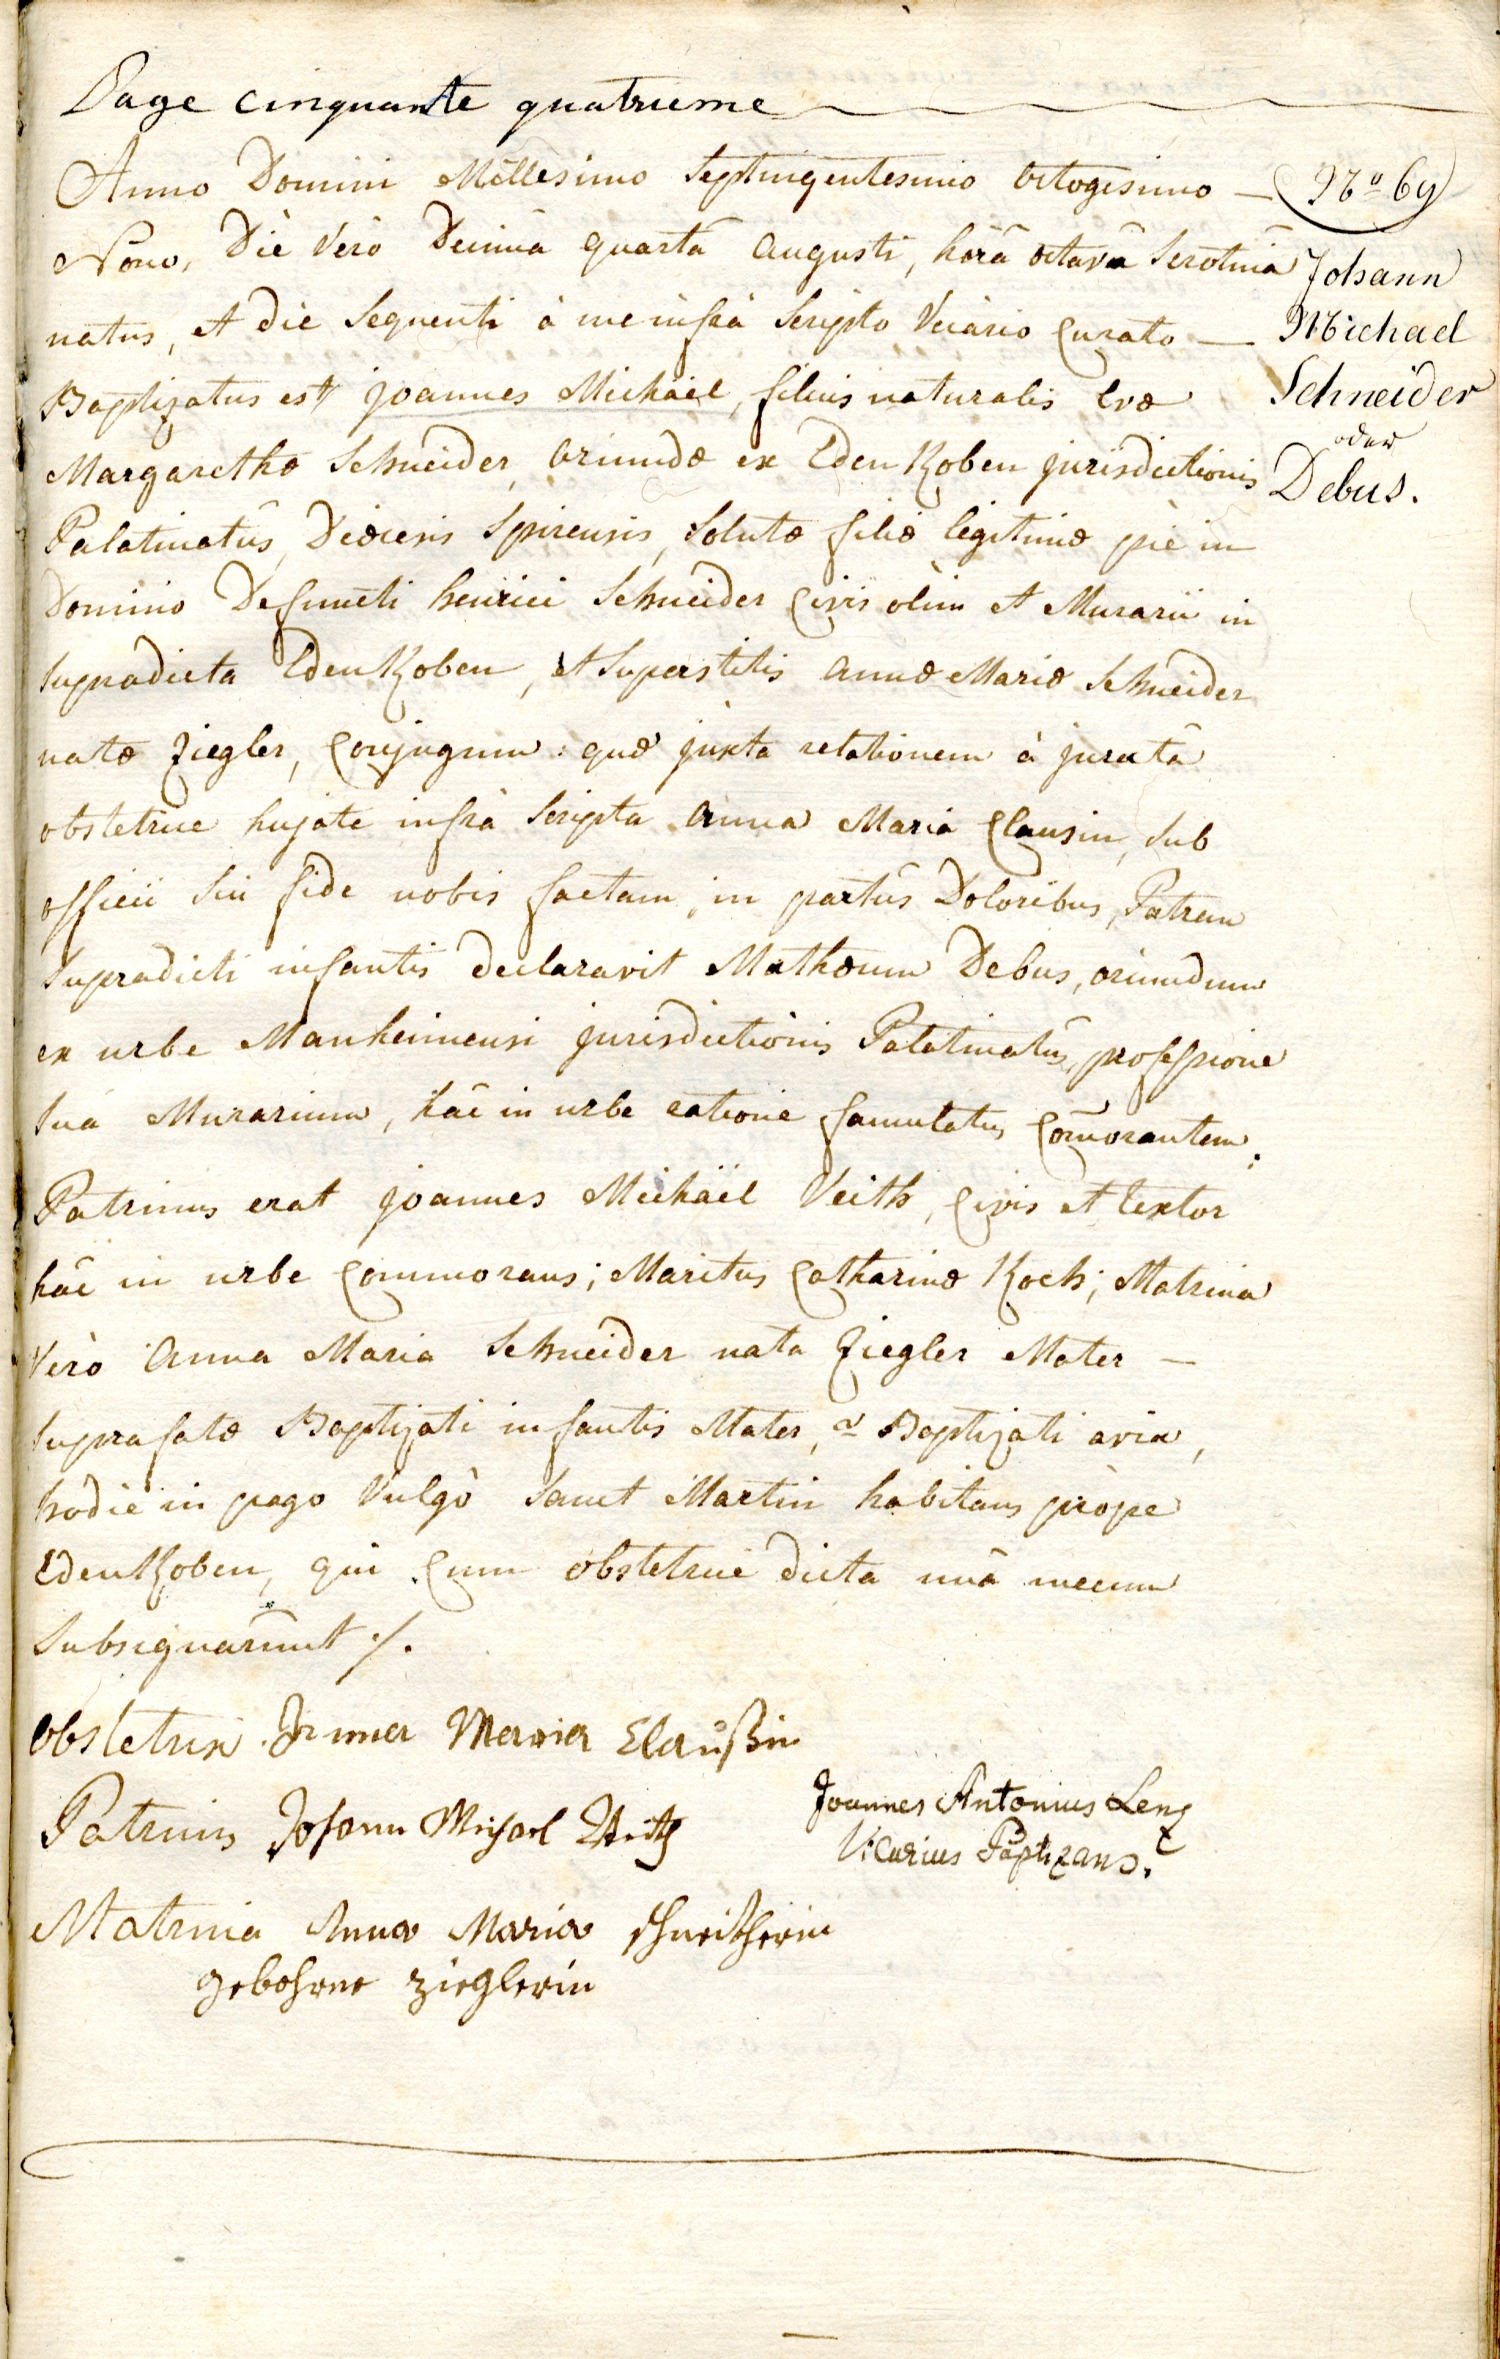 Page cinquante quatrieme
Anno Domini Millesimo Septingentesimo Octogesimo —
Nono, Die Verò Decimâ quartâ Augusti, horâ octavâ Serotinâ
natus, et die Sequenti à me infrà Scripto Vicario Curato —
Baptizatus est joannes Michaël, filius naturalis Evæ
Margarethæ Schneider, oriundæ ex EdenKoben jurisdictionis
Palatinatûs, Diœcesis Spirensis, Solutæ filiæ legitimæ piè in
Domino Defuncti henrici Schneider Civis olim et Murarii in
Supradicta EdenKoben, et Superstitis Annæ Mariæ Schneider
natæ Ziegler, Conjugum: quæ juxta relationem à juratâ
obstetrice hujate infrà Scripta Anna Maria Clausin, Sub
officii Sui fide nobis factam, in partûs Doloribus, Patrem
Supradicti infantis declaravit Mathæum Debus, oriundum
ex urbe Manheimensi jurisdictionis Palatinatûs, professione
Suâ Murarium, hâc in urbe ratione famulatus Com̃orantem;
Patrinus erat joannes Michaël Veith, Civis et textor
hâc in urbe Commorans; Maritus Catharinæ Koch; Matrina
Verò Anna Maria Schneider nata Ziegler Mater —
Suprafatæ Baptizati infantis Mater, & Baptizati avia,
hodiè in pago Vulgò Sanct Martin habitans pròpe
EdenKoben, qui Cum obstetrice dicta unâ mecum
Subsignarunt ·/.
Obstetrix Anna Maria Claußin
Patrinus Johann Michael Veith
Joannes Antonius Lenz
Vicarius Baptizans.
Matrina Anna Maria schneitherin
gebohrne zieglerin
Nº 69
Johann
Michael
Schneider
oder
Debus.